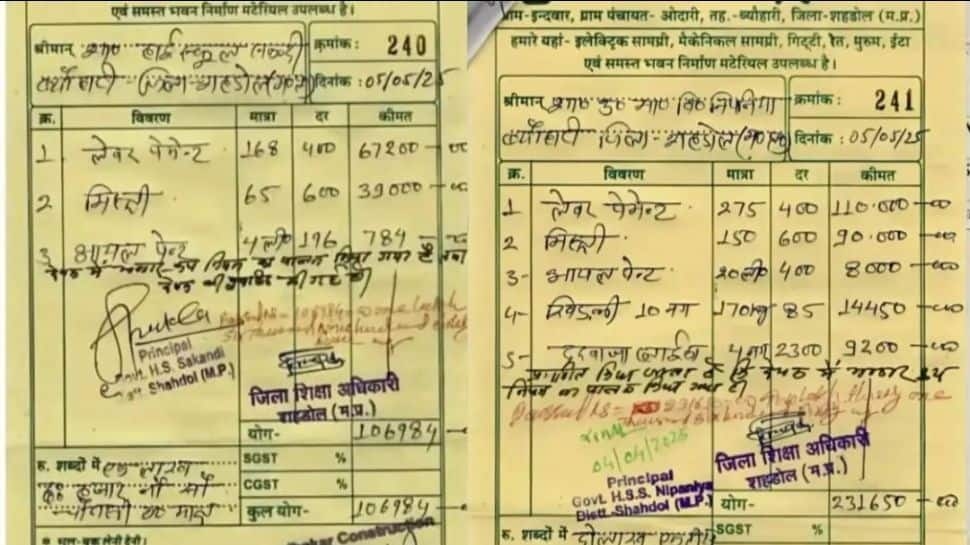 एवं समस्त भवन निर्माण मटेरियल उपलब्ध है।
श्रीमान् शास० हाई स्कूल सकन्दी
क्रमांक : 240
ब्यौहारी जिला-शहडोल (म०प्र०)
दिनांक : 05/05/25
क्र. विवरण मात्रा दर कीमत
1 लेबर पेमेन्ट 168 400 67200 -00
2 मिस्त्री 65 600 39000 -00
3 आयल पेन्ट 4 ली० 196 784 -00
Passed Rs - 106984
Principal
Govt. H.S. Sakandi
Distt. Shahdol (M.P.)
जिला शिक्षा अधिकारी
शहडोल (म.प्र.)
योग- 106984 -
रु. शब्दों में एक लाख
SGST %
छः हजार नौ सौ
CGST %
चौरासी रू० मात्र
कुल योग- 106984 -00
Construction
ग्राम-इन्दवार, ग्राम पंचायत- ओदारी, तह.-ब्यौहारी, जिला-शहडोल (म.प्र.)
हमारे यहां- इलेक्ट्रिक सामग्री, मैकेनिकल सामग्री, गिट्टी, रेत, मुरुम, ईंटा
एवं समस्त भवन निर्माण मटेरियल उपलब्ध है।
श्रीमान् शास० उ० मा० वि० निपनिया
क्रमांक: 241
ब्यौहारी जिला-शहडोल (म०प्र०)
दिनांक :05/05/25
क्र. विवरण मात्रा दर कीमत
1 लेबर पेमेन्ट 275 400 110000 -00
2 मिस्त्री 150 600 90000 -00
3- आयल पेन्ट 20ली० 400 8000 -00
4- खिडकी 10 नग 170kg 85 14450 -00
5- दरवाजा 4 नग 2300 9200 -00
प्रमाणित किया जाता है कि
नियम का पालन किया गया है।
04/04/2025
Principal
Govt. H.S.S. Nipaniya
Distt.-Shahdol (M.P.)
जिला शिक्षा अधिकारी
शहडोल (म.प्र.)
योग- 231650 -00
रु. शब्दों में दो लाख
SGST %